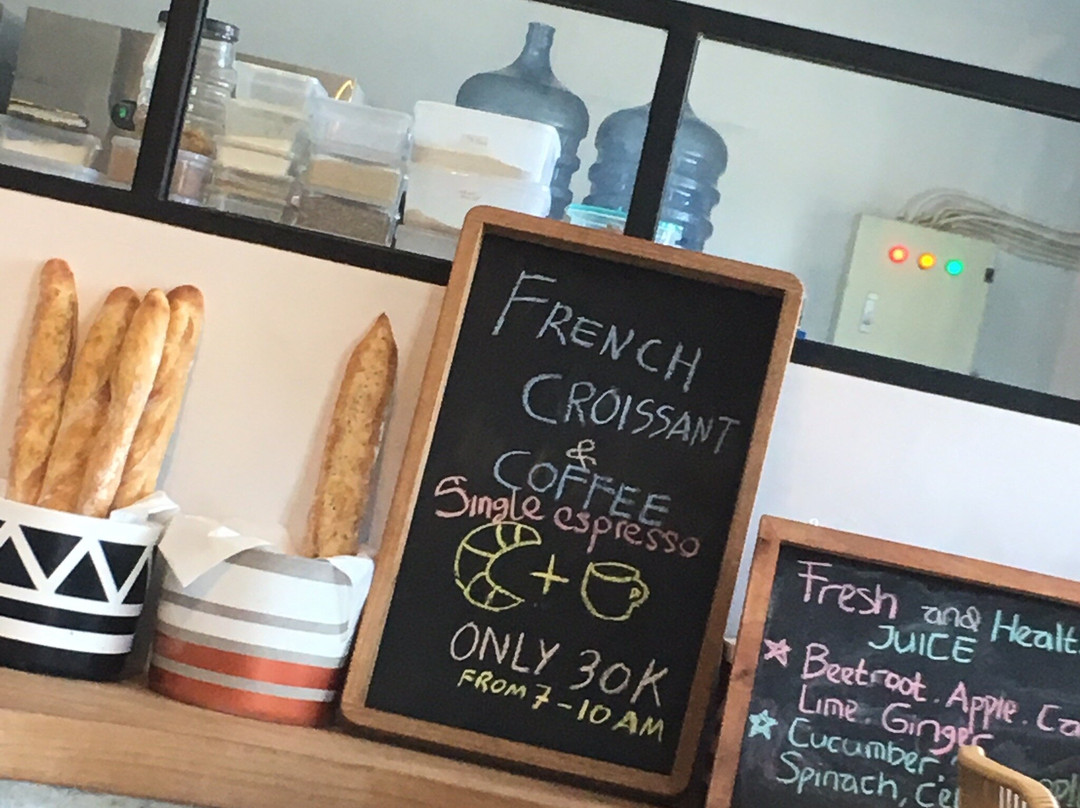 FRENCH
CROISSANT
&
COFFEE
Single espresso
+
ONLY 30K
FROM 7-10 AM
Fresh and
JUICE
Beetroot. Apple.
Lime. Ginger
Cucumber.
Spinach,